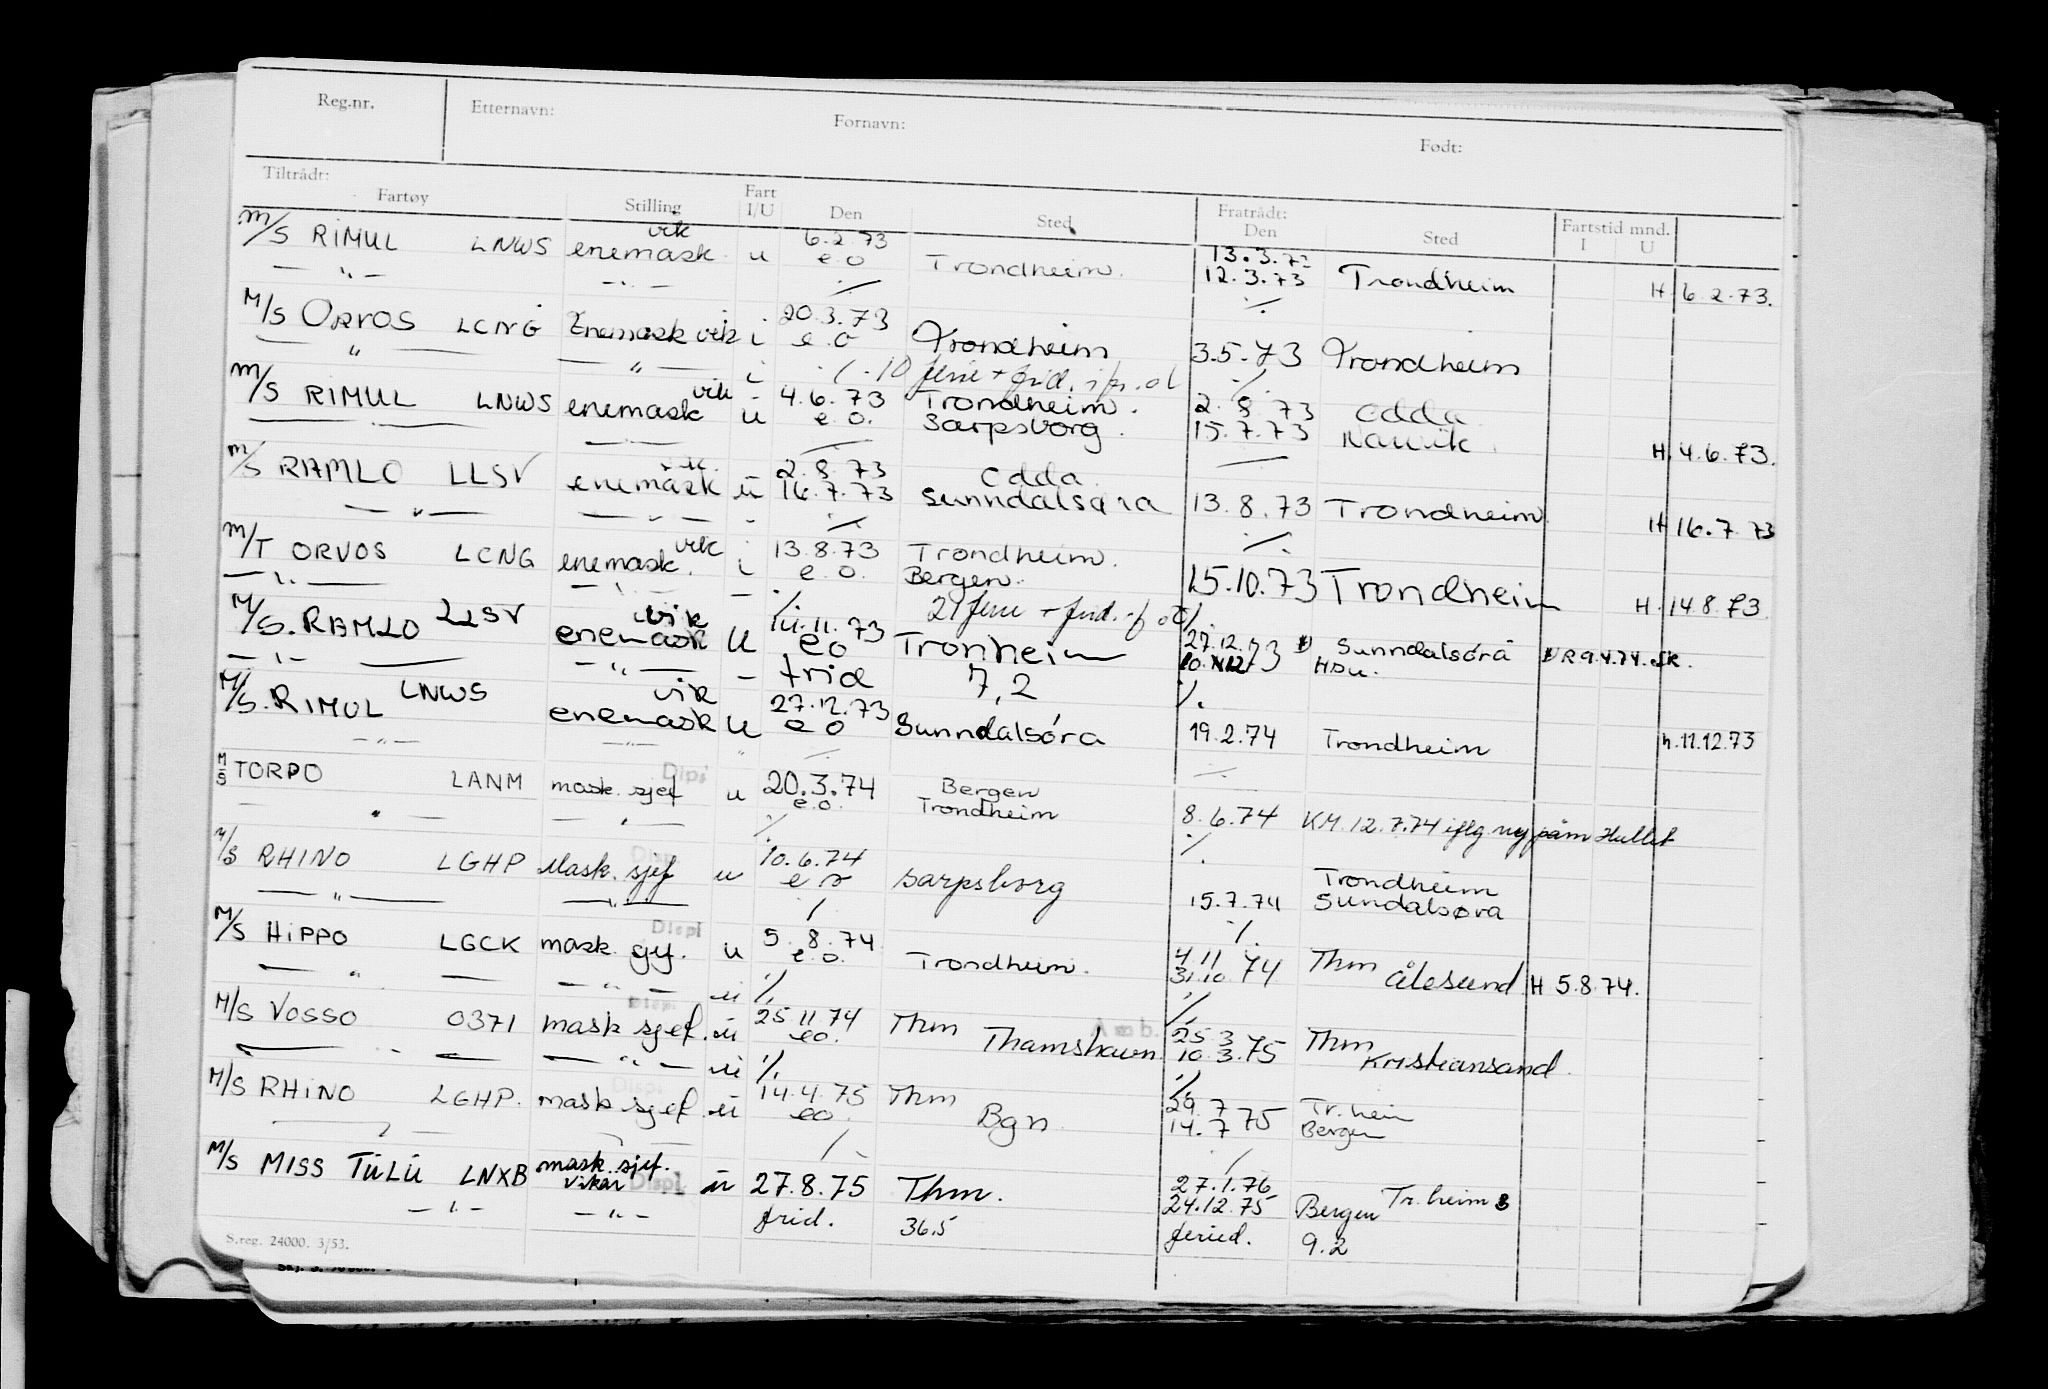 Reg.nr. Etternavn: Fornavn: Født:
Tiltrådt: Fratrådt: Fartstid mnd.
Fartøy Stilling Fart I/U Den Sted Den Sted I U
vik 6.2.73 13.3.73
M/S RIMUL LNWS enemask. u e.o Trondheim. 12.3.73 Trondheim H 6.2.73.
— " — — " — ./. ./.
M/S ORVOS LCNG Enemask vik i 20.3.73
e.o Trondheim 3.5.73 Trondheim
— " — — " — i ./. 10 ferie + frid. ./.
M/S RIMUL LNWS enemask vik u 4.6.73 Trondheim. 2.8.73 Odda
e.o. Sarpsborg. 15.7.73 Narvik. H. 4.6.73.
M/S RAMLO LLSV vik. 2.8.73 Odda
enemask u 16.7.73 Sunndalsøra 13.8.73 Trondheim H 16.7.73
— " — — " — - ./. ./.
M/T ORVOS LCNG enemask. vik i 13.8.73 Trondheim.
e.o. Bergen. 15.10.73 Trondheim H. 14.8.73
— " — — " — - ./. 21 ferie + frid. ./.
M/S. RAMLO LLSV vik 11.11.73 27.12.73 Sunndalsöra R 9.4.74.
enemask U eo Tronheim 10.12.73
— " — — " — - frid 7,2 ./.
M/S. RIMUL LNWS vik 27.12.73
enemask U eo Sunndalsóra 19.2.74 Trondheim h. 11.12.73
— " — — " — " ./. ./.
M/S TORPO LANM mask. sjef Dipl u 20.3.74 Bergen
e.o. Trondheim 8.6.74 KM. 12.7.74 iflg. Hullet
— " — — " — ./. ./.
M/S RHINO LGHP Mask. sjef u 10.6.74 Trondheim
e o Sarpsborg 15.7.74 Sundalsøra
— " — — " — / ./.
M/S HIPPO LGCK mask. sjef. Displ u 5.8.74 4.11 Thm
e.o. Trondheim. 31.10.74 Ålesund H 5.8.74.
— " — — " — u ./. ./.
M/S VOSSO 0371 mask sjef. Displ u 25.11.74 Thm Amb. 25.3 Thm
eo. Thamshavn. 10.3.75 Kristiansand.
— " — — " — u ./. ./.
M/S RHINO LGHP. mask sjef. Displ u 14.4.75 Thm 29.7 Tr.heim
eo. Bgn. 14.7 75 Bergen
M/S MISS TULU LNXB mask. sjef. 27.1.76
vikar Displ u 27.8.75 Thm. 24.12.75 Bergen Tr.heim
— " — — " — frid. 36.5 feried. 9.2
S.reg. 24000. 3/53.